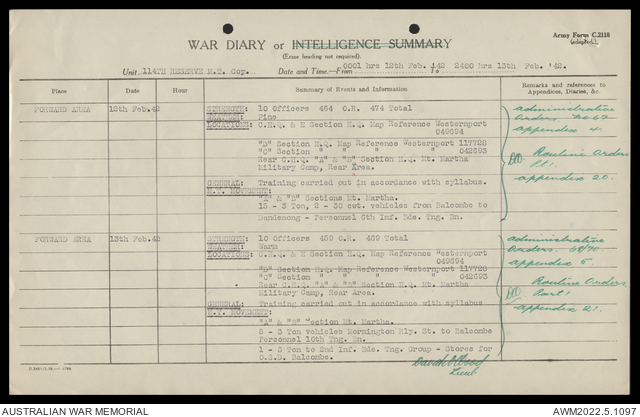 Army Form C.2118
(adapted).
WAR DIARY or INTELLIGENCE SUMMARY
(Erase heading not required).
Unit 114TH RESERVE M.T. Coy. Date and Time—From 0001 hrs 12th Feb. 142 To 2400 hrs 13th Feb. '42.
Place Date Hour Summary of Events and Information Remarks and references to
Appendices, Diaries, &c.
FORWARD AREA 12th Feb.42 STRENGTH: 10 Officers 464 O.R. 474 Total
WEATHER: Fine
LOCATIONS: C.H.Q. & E Section H.Q. Map Reference Westernport
049694
"D" Section H.Q. Map Reference Westernport 117728
"C" Section " " " " 042693
Rear C.H.Q. "A" & "B" Section H.Q. Mt. Martha
Military Camp, Rear Area.
GENERAL: Training carried out in accordance with syllabus.
M.T. MOVEMENT:
"A" & "B" Sections Mt. Martha.
15 - 3 Ton, 2 - 30 cwt. vehicles from Balcombe to
Dandenong - Personnel 5th Inf. Bde. Tng. Bn.
administrative
orders no 67
appendix 4.
Routine Orders
Pt 1.
appendix 20.
FORWARD AREA 13th Feb.42 STRENGTH: 10 Officers 459 O.R. 469 Total
WEATHER: Warm
LOCATIONS: C.H.Q. & E Section H.Q. Map Reference Westernport
049694
"D" Section H.Q. Map Reference Westernport 117728
"C" Section " " " " 042693
Rear C.H.Q. "A" & "B" Section H.Q. Mt. Martha
Military Camp, Rear Area.
GENERAL: Training carried out in accordance with syllabus
M.T. MOVEMENT:
"A" & "B" Section Mt. Martha.
5 - 3 Ton vehicles Mornington Rly. St. to Balcombe
Personnel 10th Tng. Bn.
1 - 3 Ton to 2nd Inf. Bde. Tng. Group - Stores for
O.S.D. Balcombe.
administrative
orders 68/70
appendix 5.
Routine Orders
Part 1
appendix 21.
Lieut
AUSTRALIAN WAR MEMORIAL
AWM2022.5.1097